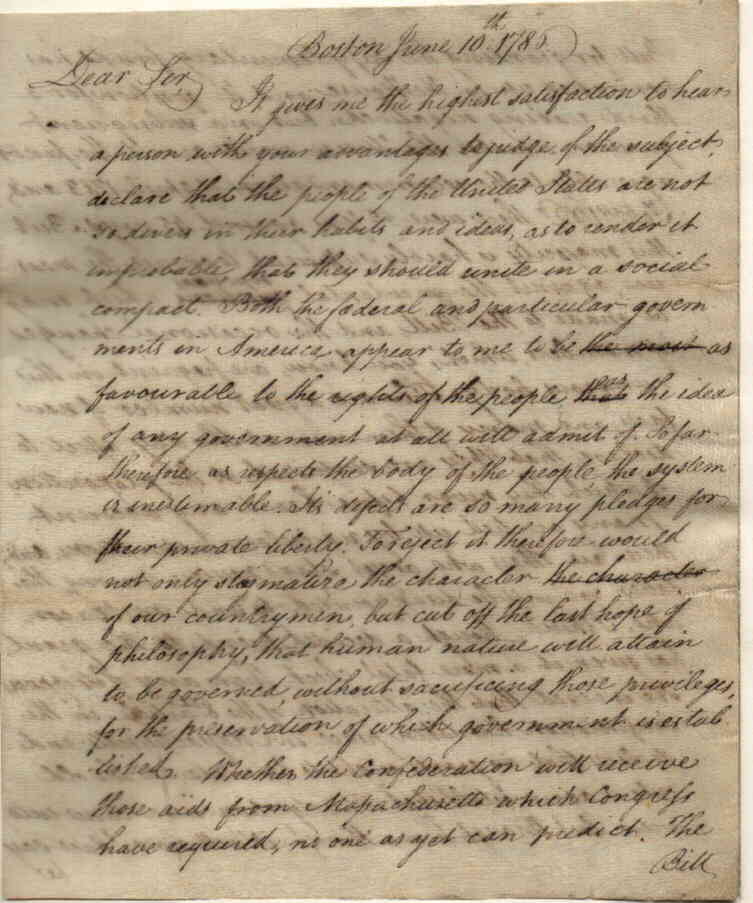 Boston June 10th. 1785.
Dear Sir,
It gives me the highest satisfaction to hear
a person with your advantages to judge of the subject,
declare that the people of the United States are not
so divers in their habits and ideas, as to render it
improbable, that they should unite in a social
compact. Both the fœderal and particular govern
ments in America, appear to me to be the most as
favourable to the rights of the people that as the idea
of any government at all will admit of. So far
therefore as respects the body of the people, the system
is inestimable. Its defects are so many pledges for
their private liberty. To reject it therefore would
not only stigmatize the character the character
of our countrymen, but cut off the last hope of
philosophy, that human nature will attain
to be governed, without sacrificing those privileges,
for the preservation of which government is estab
lished. Whether the Confederation will receive
those aids from Massachusetts which Congress
have required, no one as yet can predict. The
Bill